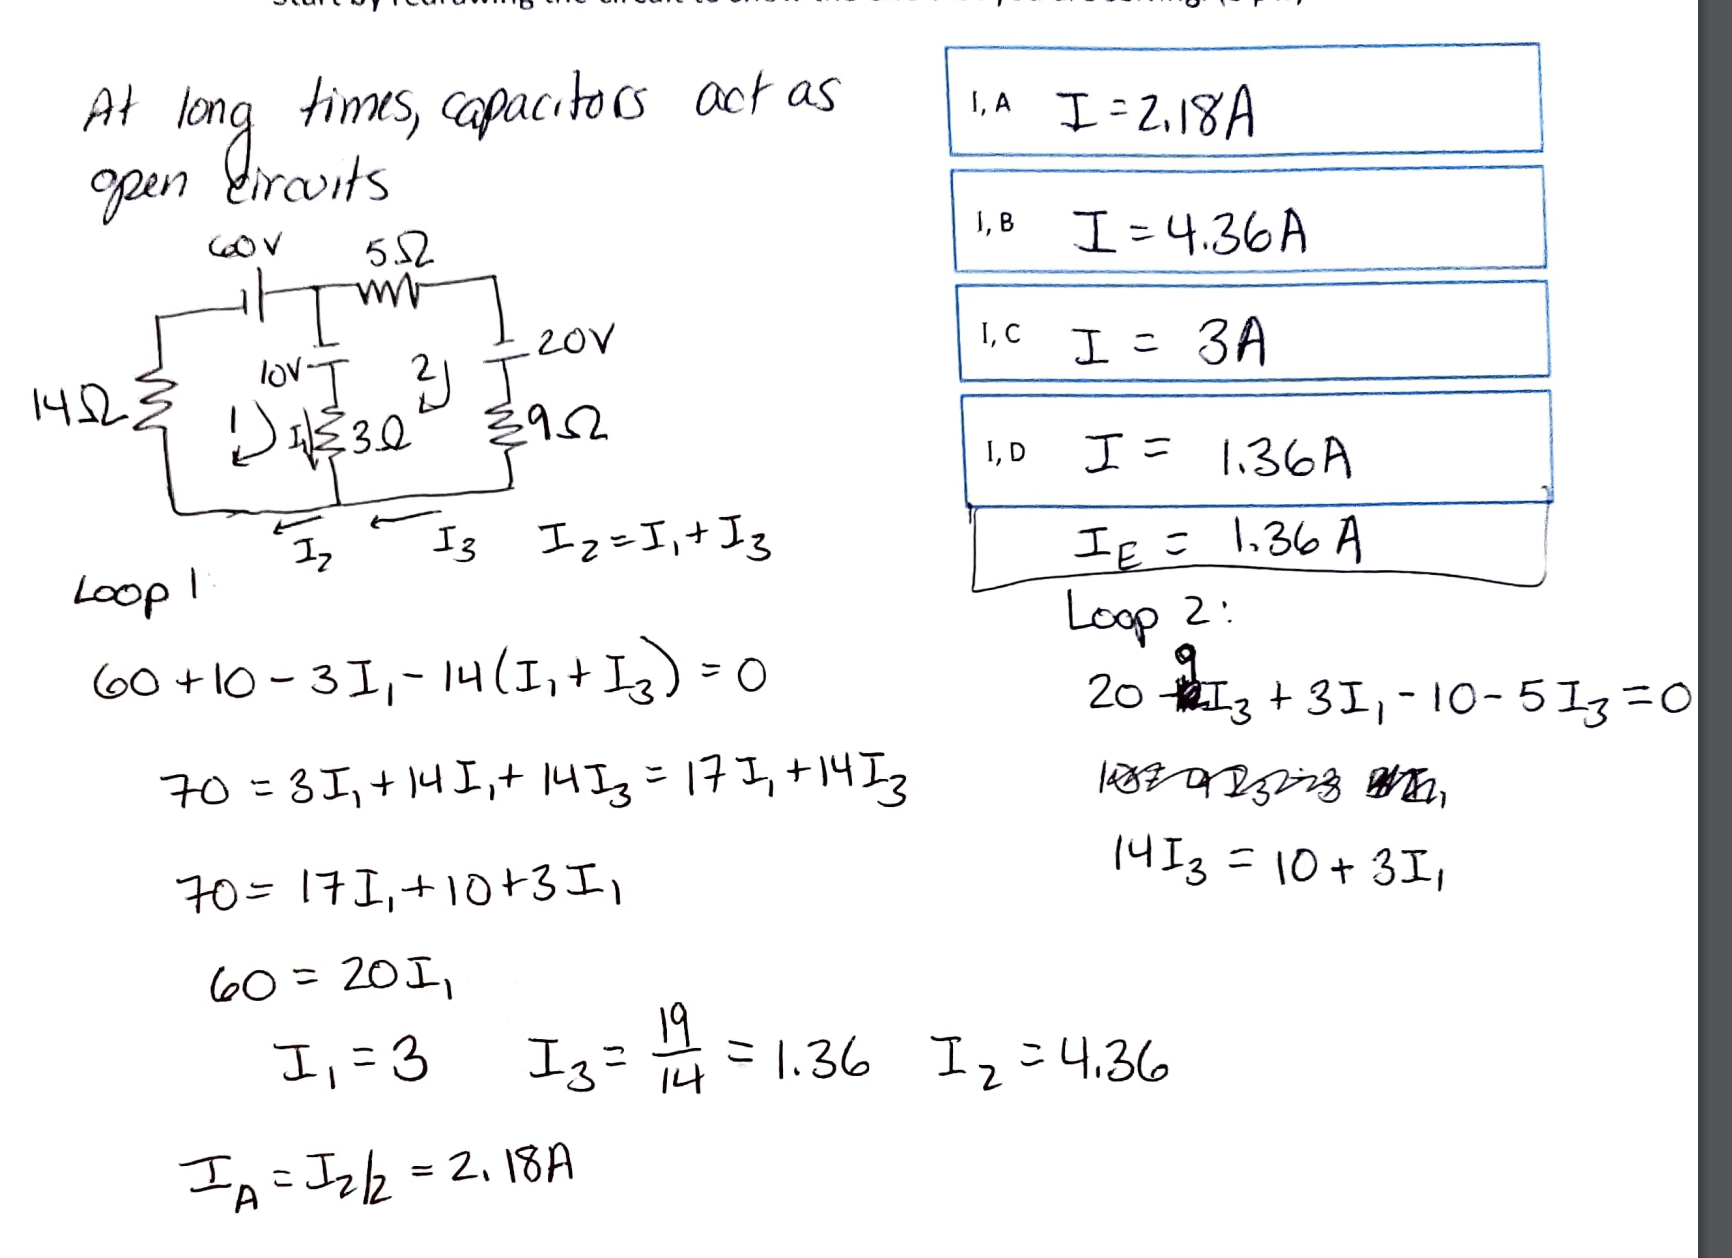 At long times, capacitors act as
open circuits
60V 5Ω
20V
10V 2
14Ω 1 I₁ 3Ω 9Ω
I₂ I₃ I₂=I₁+I₃
Loop 1:
60+10-3I₁-14(I₁+I₃)=0
70=3I₁+14I₁+14I₃=17I₁+14I₃
70=17I₁+10+3I₁
60=20I₁
I₁=3 I₃=19/14=1.36 I₂=4.36
I_A=I₂/2=2.18A
I, A I=2.18A
I, B I=4.36A
I, C I=3A
I, D I=1.36A
I_E=1.36A
Loop 2:
20-9I₃+3I₁-10-5I₃=0
14I₃=10+3I₁